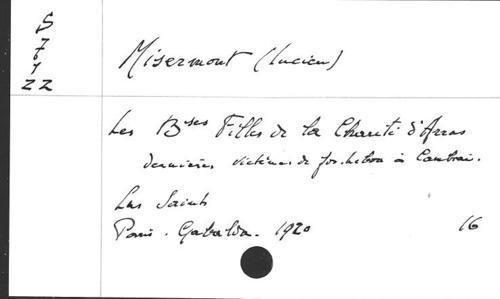 S
7
6
1
22
Misermont (Lucien)
Les Bses Filles de la Charité d'Arras
dernières victimes de Jos. Lebon à Cambrai.
Les Saints
Paris. Gabalda. 1920 16